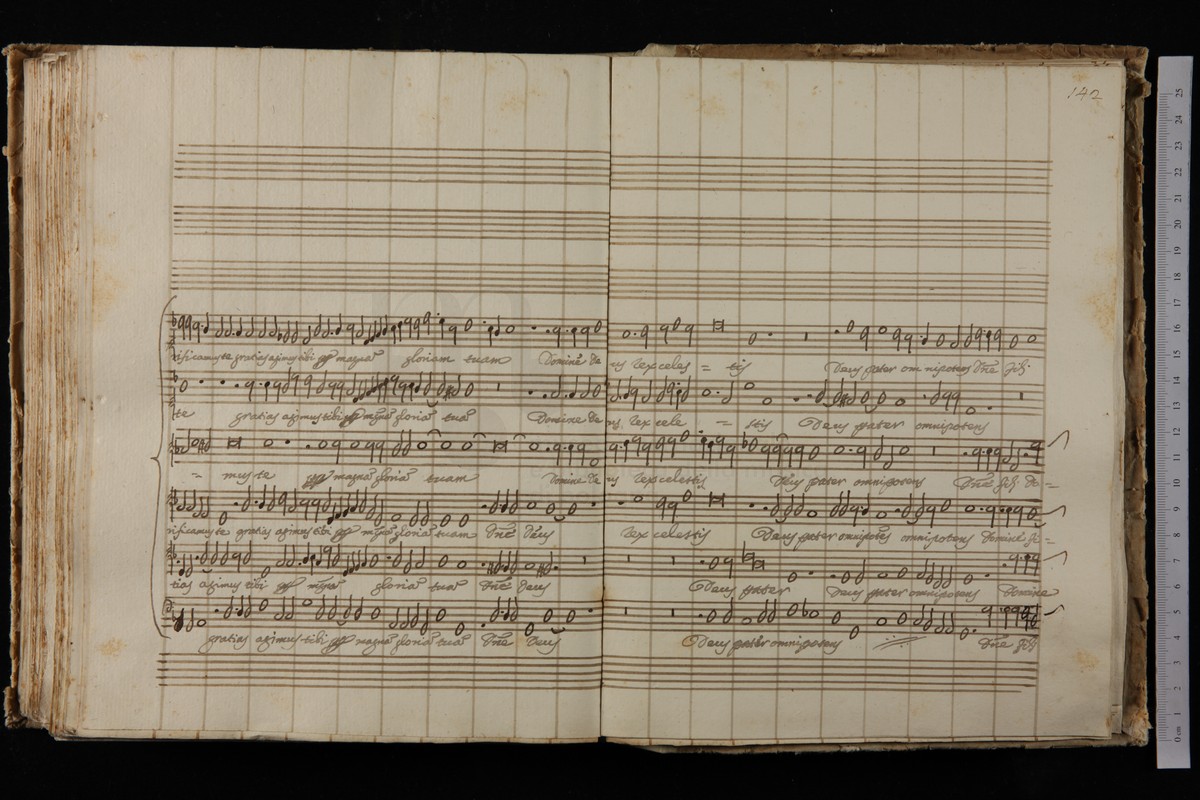 142
rificamus te gratias agimus tibi ppr magnā gloriam tuam Domine De us Rex celes = tis Deus pater om nipotens Dñe fili
te gratias agimus tibi ppr magnā gloriā tuā Domine De us Rex cele = stis Deus pater omnipotens
= mus te ppr magnā gloriā tuam Domine De us Rex celestis Deus pater omnipotens Dñe fili De =
rificamus te gratias agimus tibi ppr magnā gloriā tuam Dñe Deus Rex celestis Deus pater omnipotēs omnipotens Domine fi =
tias agimus tibi ppr magnā gloriā tuā Dñe Deus Deus pater Deus pater omnipotens Domine
gratias agimus tibi ppr magnā gloriā tuā Dñe Deus Deus pater omnipotens Dñe fili
0 cm 1 2 3 4 5 6 7 8 9 10 11 12 13 14 15 16 17 18 19 20 21 22 23 24 25